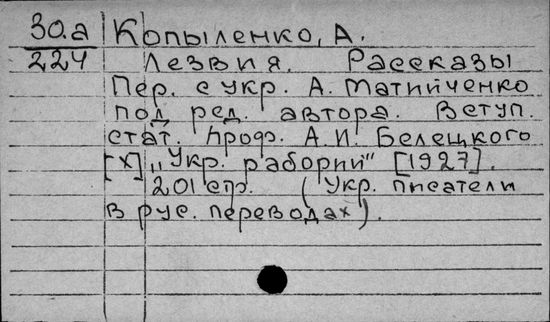 30.а Копыленко, А.
224 Лезвия. Рассказы
Пер. с укр. А. Матийченко
под ред. автора. Вступ.
стат. проф. А.И. Белецкого
[Х] „Укр. раборий" [1927].
201 стр. (Укр. писатели
в рус. переводах).